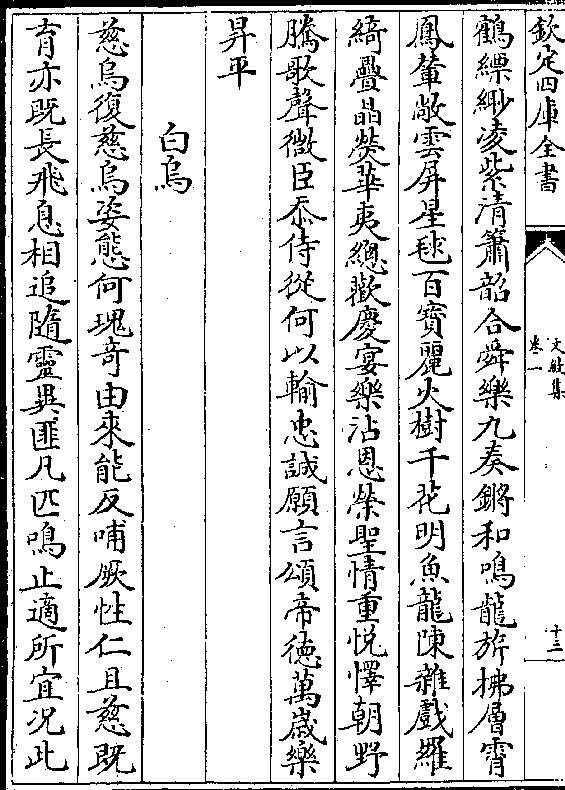 欽定四庫全書
文敏集
卷一
十三
鶴縹緲凌紫清簫韶合舜樂九奏鏘和鳴龍旂拂層霄
鳳輦敞雲屏星毬百寶麗火樹千花明魚龍陳雜戲羅
綺疊晶熒華夷總歡慶宴樂沾恩榮聖情重悅懌朝野
騰歌聲微臣忝侍從何以輸忠誠願言頌帝德萬歲樂
昇平
白烏
慈烏復慈烏姿態何瑰奇由來能反哺厥性仁且慈既
育亦既長飛息相追隨靈異匪凡匹鳴止適所宜况此